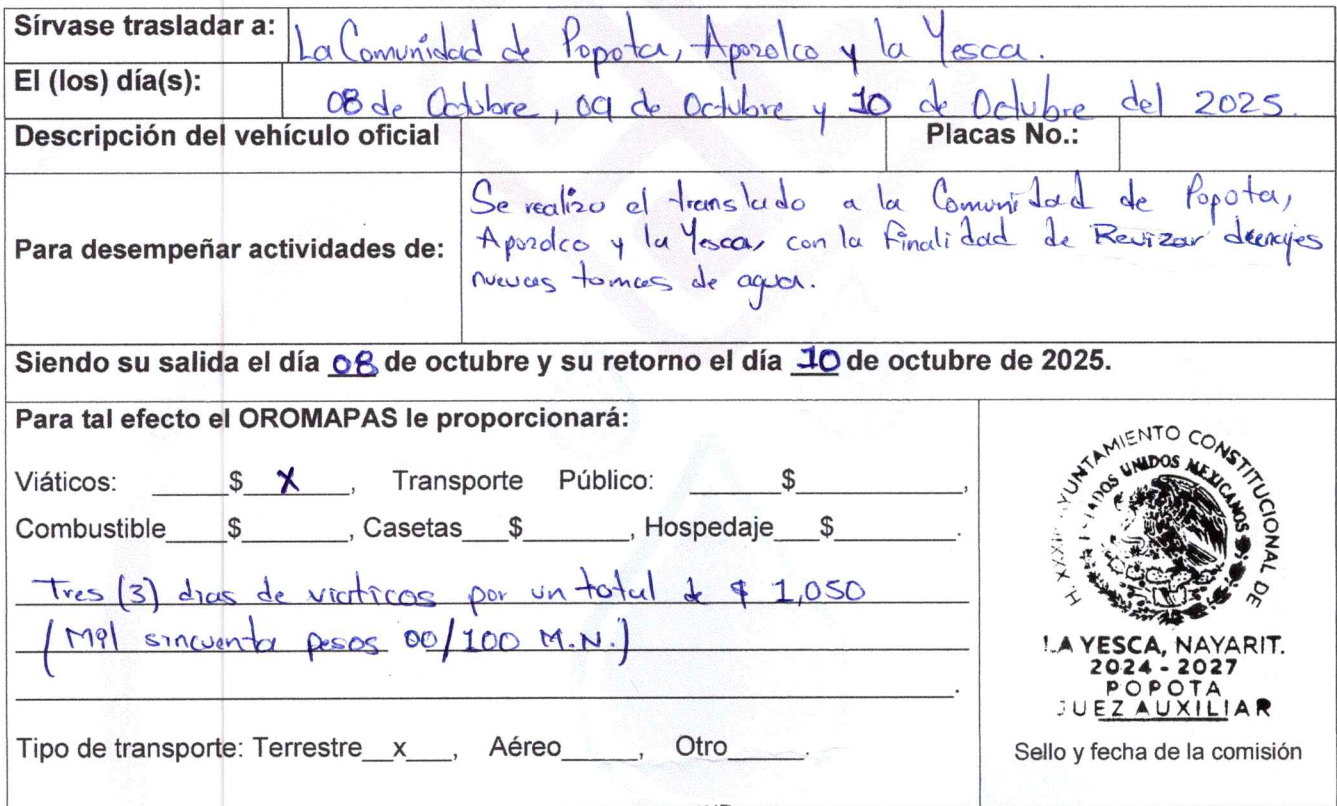 Sírvase trasladar a: La Comunidad de Popota, Apozolco y la Yesca.
El (los) día(s): 08 de Octubre, 09 de Octubre y 10 de Octubre del 2025.
Descripción del vehículo oficial Placas No.:
Para desempeñar actividades de: Se realizo el translado a la Comunidad de Popota,
Apozolco y la Yesca, con la Finalidad de Revizar drenajes
nuevas tomas de agua.
Siendo su salida el día 08 de octubre y su retorno el día 10 de octubre de 2025.
Para tal efecto el OROMAPAS le proporcionará:
Viáticos: ______$__X____, Transporte Público: _______$___________,
Combustible_____$________, Casetas____$________, Hospedaje____$_________.
Tres (3) dias de viaticos por un total de $ 1,050
(Mil sincuenta pesos 00/100 M.N.)
Tipo de transporte: Terrestre__x___, Aéreo_____, Otro_____.
AYUNTAMIENTO CONSTITUCIONAL DE
ESTADOS UNIDOS MEXICANOS
LA YESCA, NAYARIT.
2024 - 2027
POPOTA
JUEZ AUXILIAR
Sello y fecha de la comisión